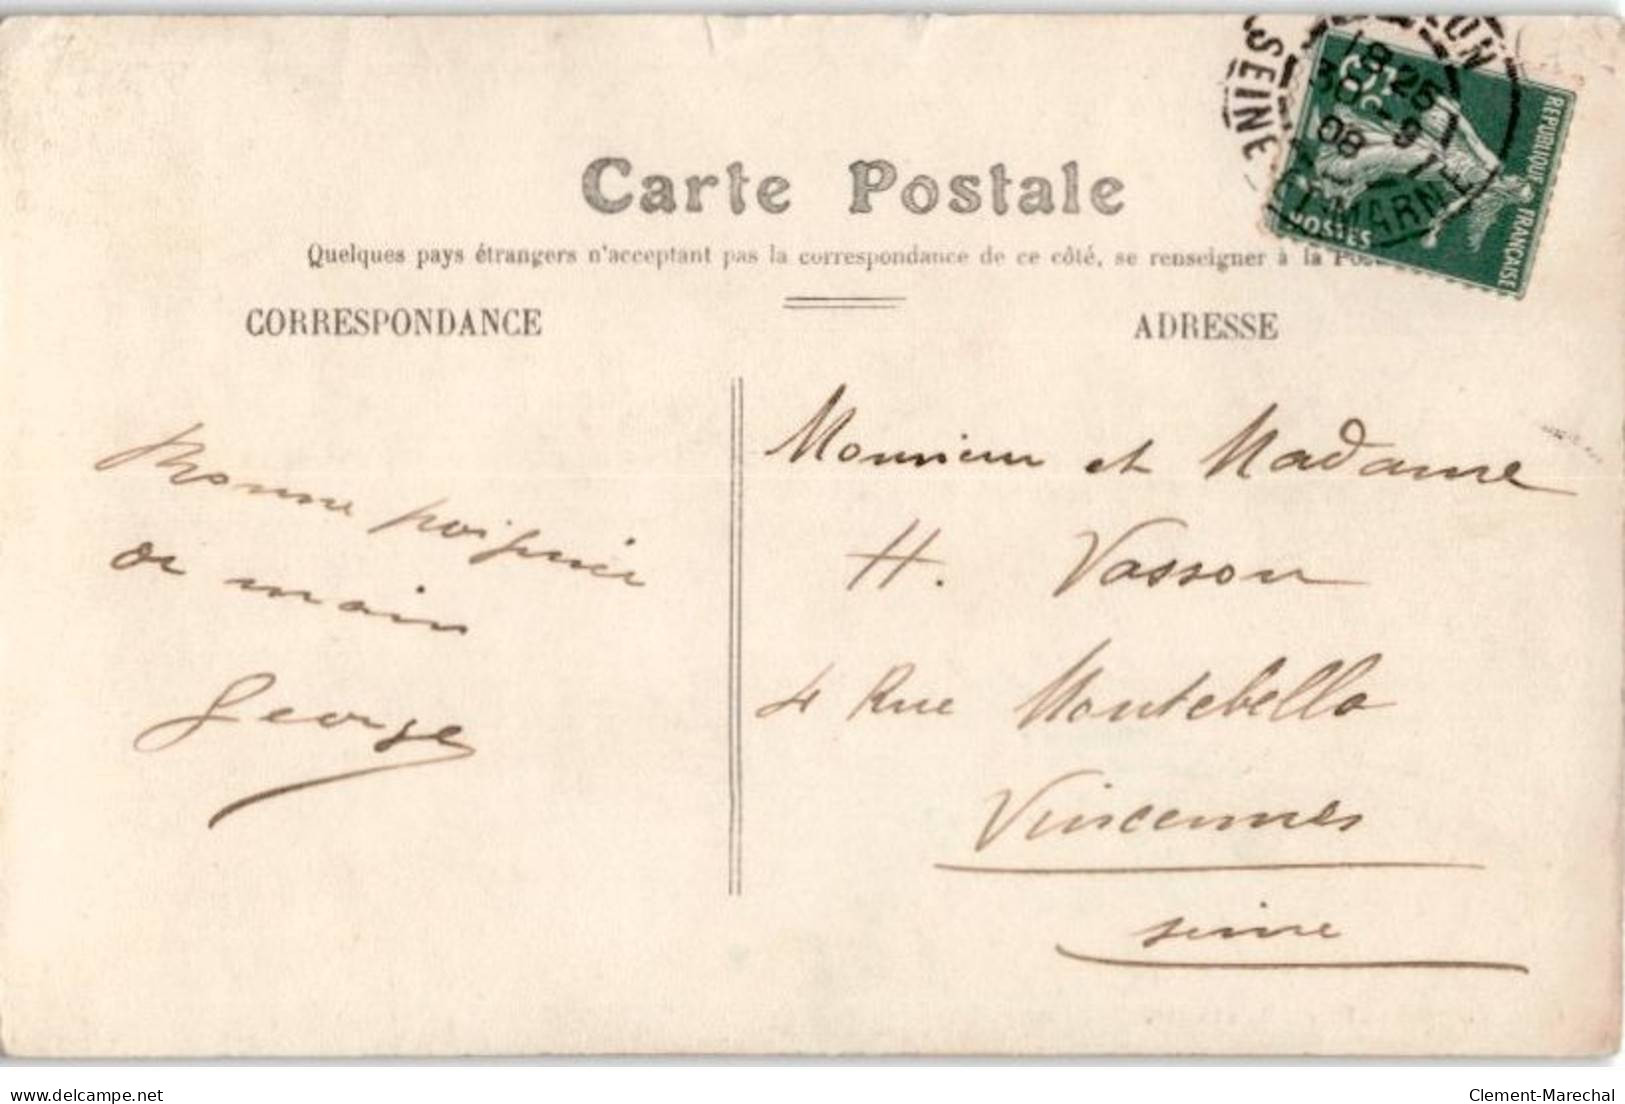 Carte Postale
Quelques pays étrangers n'acceptant pas la correspondance de ce côté, se renseigner à la Pos
CORRESPONDANCE
ADRESSE
Bonne poignée
de main
George
Monsieur et Madame
H. Vasson
4 Rue Montebello
Vincennes
Seine
SEINE
18·25
30-9
08
MARNE
POSTES
REPUBLIQUE FRANÇAISE
www.delcampe.net
Clement-Marechal